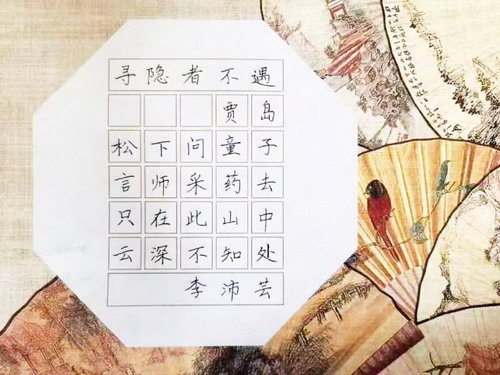 寻隐者不遇
贾岛
松下问童子
言师采药去
只在此山中
云深不知处
李沛芸